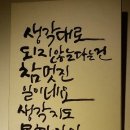 생각대로
되지 않는다는건
참 멋진
일이네요
생각지도